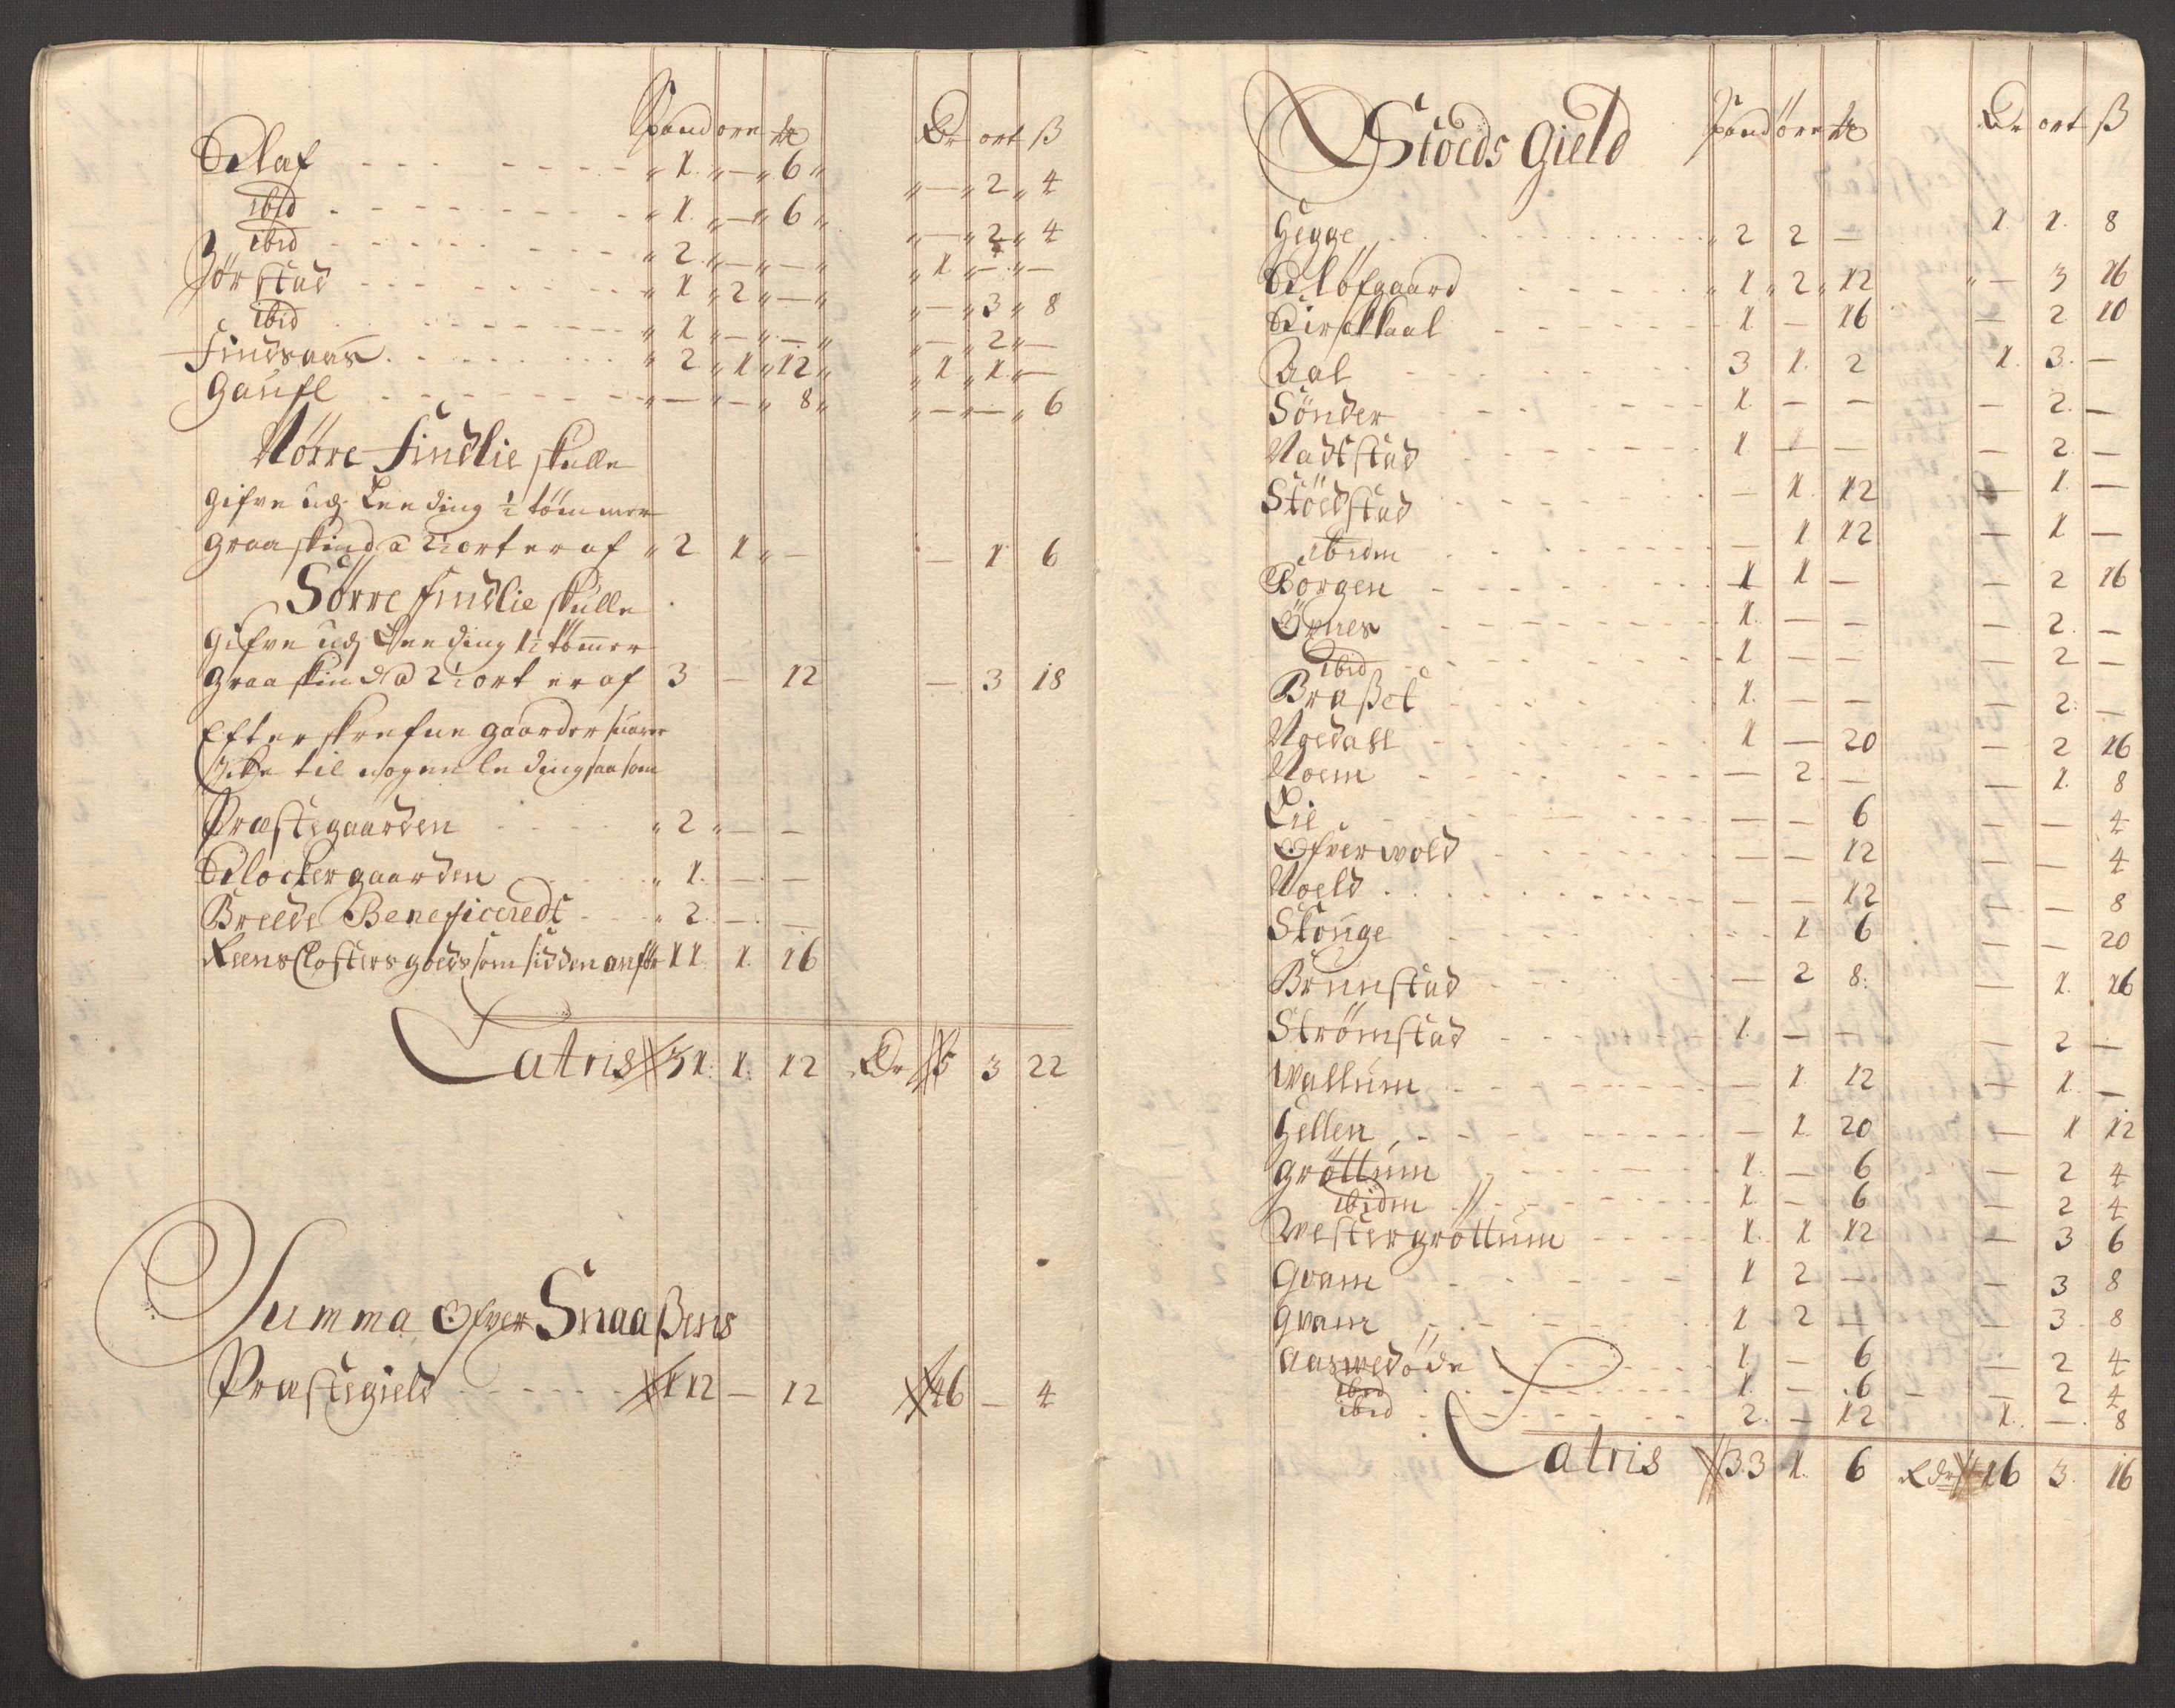 Spand öre mk Dr ort ß
Klaf 1 — 6 — 2 4
ibid 1 — 6 — 2 4
ibid 2 — — 1 — —
Jörstad 1 2 — — 3 8
ibid 1 — — — 2 —
Findsaas 2 1 12 1 1 —
Gaufl — — 8 — — 6
Nörre Findlie skulle
gifve udj Leeding ½ tömmer
graaskind a 2½ ort er af 2 1 — — 1 6
Sörre findlie skulle
gifve udj Leeding 1½ tömmer
graaskind a 2½ ort er af 3 — 12 — 3 18
Efterskrefne gaarder suarer
icke til nogen leding saa som
Præstegaarden 2 — —
Klockergaarden 1 — —
Breede Beneficeredt 2 — —
Reens Closters goeds som sidden anför 11 1 16
Latris 31 1 12 Dr 5 3 22
Summa Ofver Snaaßens
Præstegield 112 — 12 46 — 4
Stoeds Gield Spand öre mk Dr ort ß
Hegge 2 2 — 1 1 8
Klöfgaard 1 2 12 — 3 16
Kirchhaal 1 — 16 — 2 10
Aal 3 1 2 1 3 —
Sönder 1 — — — 2 —
Nadtstad 1 — — — 2 —
Stöedstad — 1 12 — 1 —
ibidm — 1 12 — 1 —
Borgen 1 1 — — 2 16
Öxnes 1 — — — 2 —
ibid 1 — — — 2 —
Braßet 1 — — — 2 —
Noedahl 1 — 20 — 2 16
Noem — 2 — — 1 8
Lie — — 6 — — 4
Ofverwold — — 12 — — 4
Woeld — — 12 — — 8
Stönge 1 6 — — 20
Brunstad — 2 8 — 1 16
Strömstad 1 — — — 2 —
Wallum — 1 12 — 1 —
Hellen — 1 20 — 1 12
Gröttum 1 — 6 — 2 4
ibidm 1 — 6 — 2 4
Westergröttum 1 1 12 — 3 6
Qvam 1 2 — — 3 8
qvam 1 2 — — 3 8
Aaswedöde 1 — 6 — 2 4
ibid 1 — 6 — 2 4
ibid 2 — 12 1 — 8
Latris 33 1 6 Rdr 16 3 16